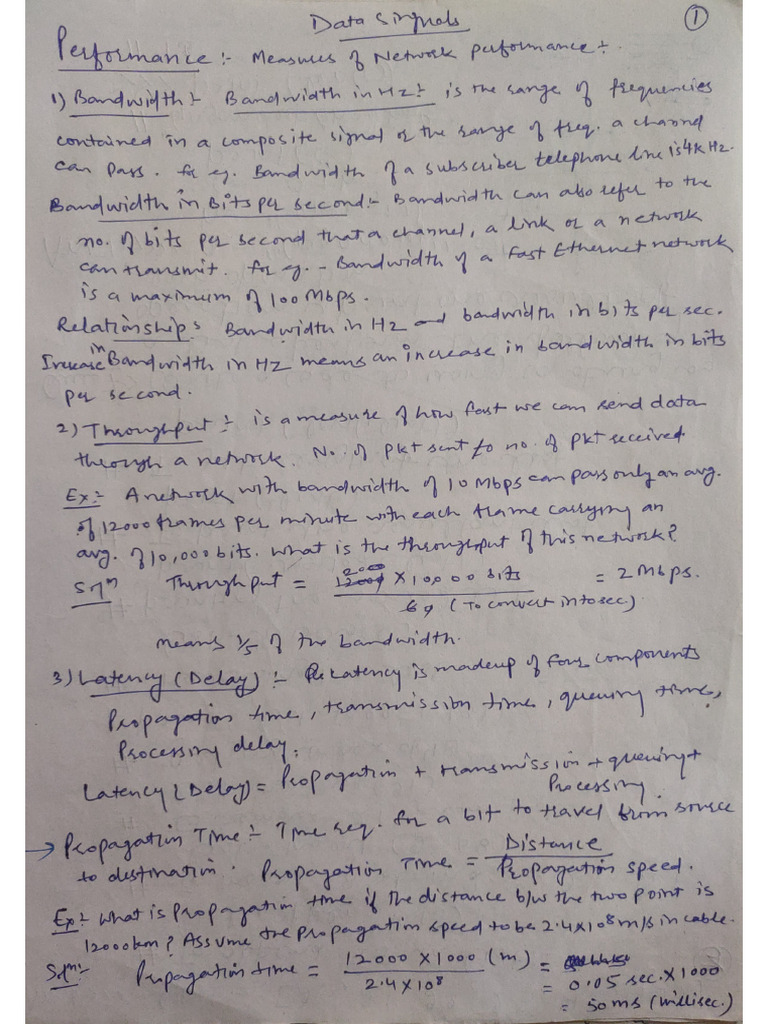 Data Signals
①
Performance :- Measures of Network performance :-
1) Bandwidth :- Bandwidth in Hz :- is the range of frequencies
contained in a composite signal or the range of freq. a channel
can pass. for eg. Bandwidth of a subscriber telephone line is 4k Hz.
Bandwidth in Bits per second :- Bandwidth can also refer to the
no. of bits per second that a channel, a link or a network
can transmit. for eg. - Bandwidth of a Fast Ethernet network
is a maximum of 100 Mbps.
Relationship : Bandwidth in Hz and bandwidth in bits per sec.
Increase in Bandwidth in Hz means an increase in bandwidth in bits
per second.
2) Throughput :- is a measure of how fast we can send data
through a network. No. of pkt sent to no. of pkt received.
Ex :- A network with bandwidth of 10 Mbps can pass only an avg.
of 12000 frames per minute with each frame carrying an
avg. of 10,000 bits. What is the throughput of this network?
2000
Solⁿ Throughput = 12000 X 10000 bits / 60 (To convert into sec) = 2 Mbps.
means 1/5 of the bandwidth.
3) Latency (Delay) :- Latency is made up of four components
Propagation time, transmission time, queuing time,
Processing delay.
Latency (Delay) = Propagation + transmission + queuing +
Processing
→ Propagation Time :- Time req. for a bit to travel from source
to destination. Propagation Time = Distance / Propagation speed.
Ex :- What is Propagation time if the distance b/w the two point is
12000 km? Assume the propagation speed to be 2.4 x 10⁸ m/s in cable.
Solⁿ :- Propagation time = 12000 X 1000 (m) / 2.4 X 10⁸ =
= 0.05 sec. X 1000
= 50 ms (millisec.)